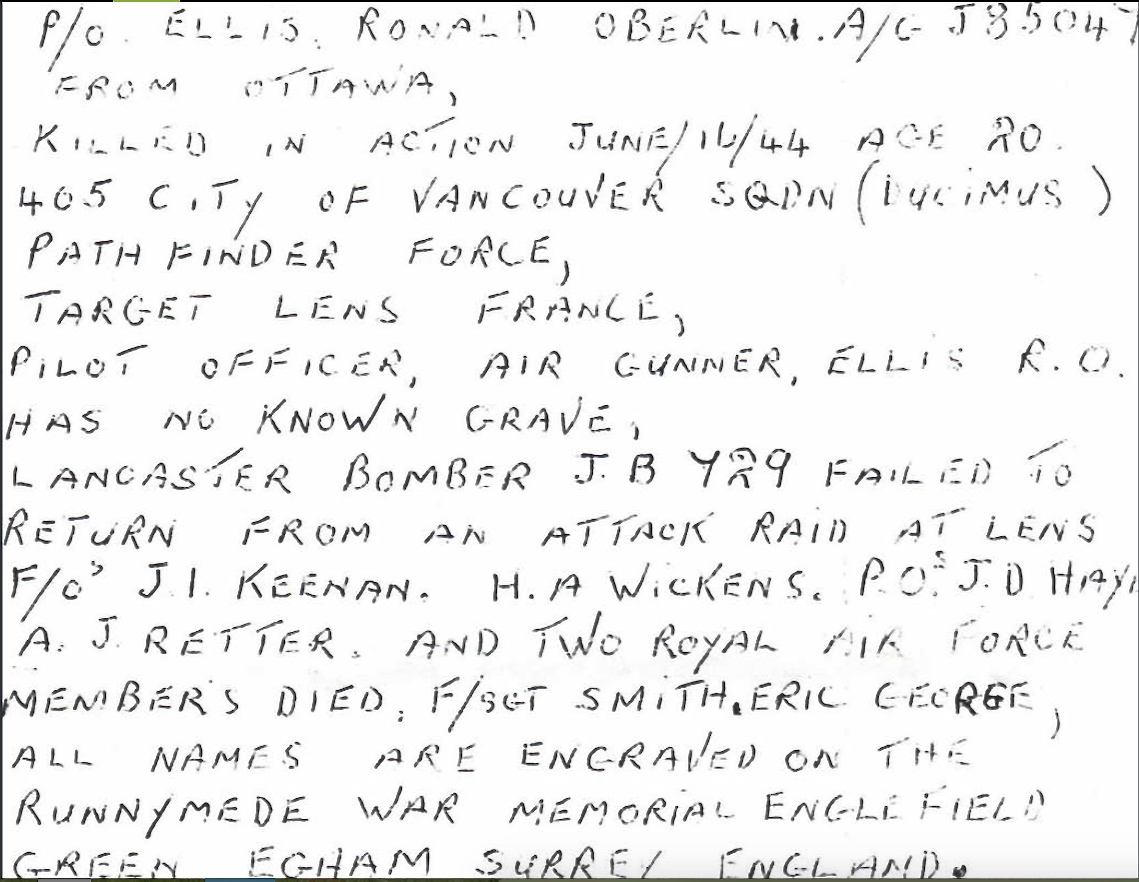 P/O. ELLIS. RONALD OBERLIN. A/G J85047
FROM OTTAWA,
KILLED IN ACTION JUNE/16/44 AGE 20.
405 CITY OF VANCOUVER SQDN (DUCIMUS)
PATH FINDER FORCE,
TARGET LENS FRANCE,
PILOT OFFICER, AIR GUNNER, ELLIS R.O.
HAS NO KNOWN GRAVE,
LANCASTER BOMBER J.B 729 FAILED TO
RETURN FROM AN ATTACK RAID AT LENS
F/O'S J.I. KEENAN. H.A WICKENS. P.O.'S J.D
A. J. RETTER. AND TWO ROYAL AIR FORCE
MEMBER'S DIED. F/SGT SMITH. ERIC GEORGE,
ALL NAMES ARE ENGRAVED ON THE
RUNNYMEDE WAR MEMORIAL ENGLEFIELD
GREEN EGHAM SURREY ENGLAND.